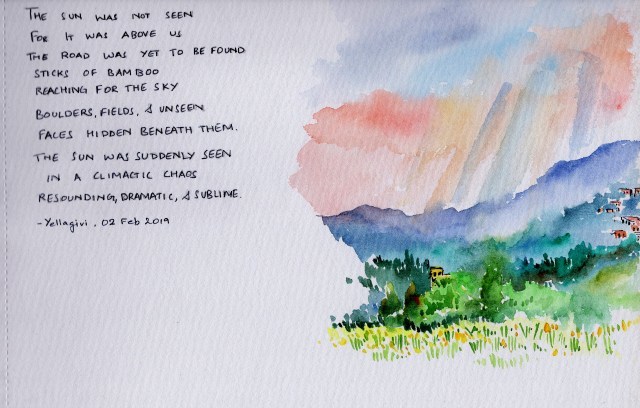 THE SUN WAS NOT SEEN
FOR IT WAS ABOVE US
THE ROAD WAS YET TO BE FOUND
STICKS OF BAMBOO
REACHING FOR THE SKY
BOULDERS, FIELDS, & UNSEEN
FACES HIDDEN BENEATH THEM.
THE SUN WAS SUDDENLY SEEN
IN A CLIMACTIC CHAOS
RESOUNDING, DRAMATIC, & SUBLIME.
-Yellagivi . 02 Feb 2019